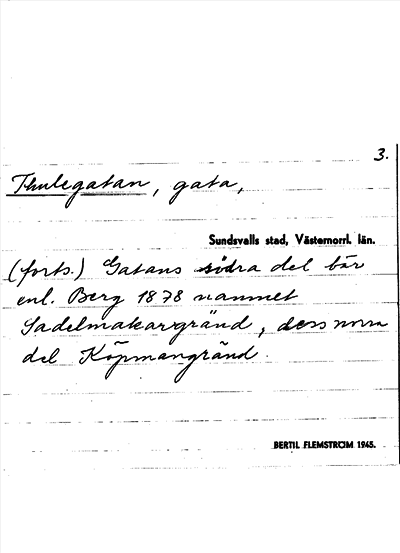 3.
Thulegatan, gata,
Sundsvalls stad, Västernorrl. län.
(forts.) Gatans södra del bär
enl. Berg 1878 namnet
Sadelmakargränd, dess norra
del Köpmangränd.
BERTIL FLEMSTRÖM 1945.